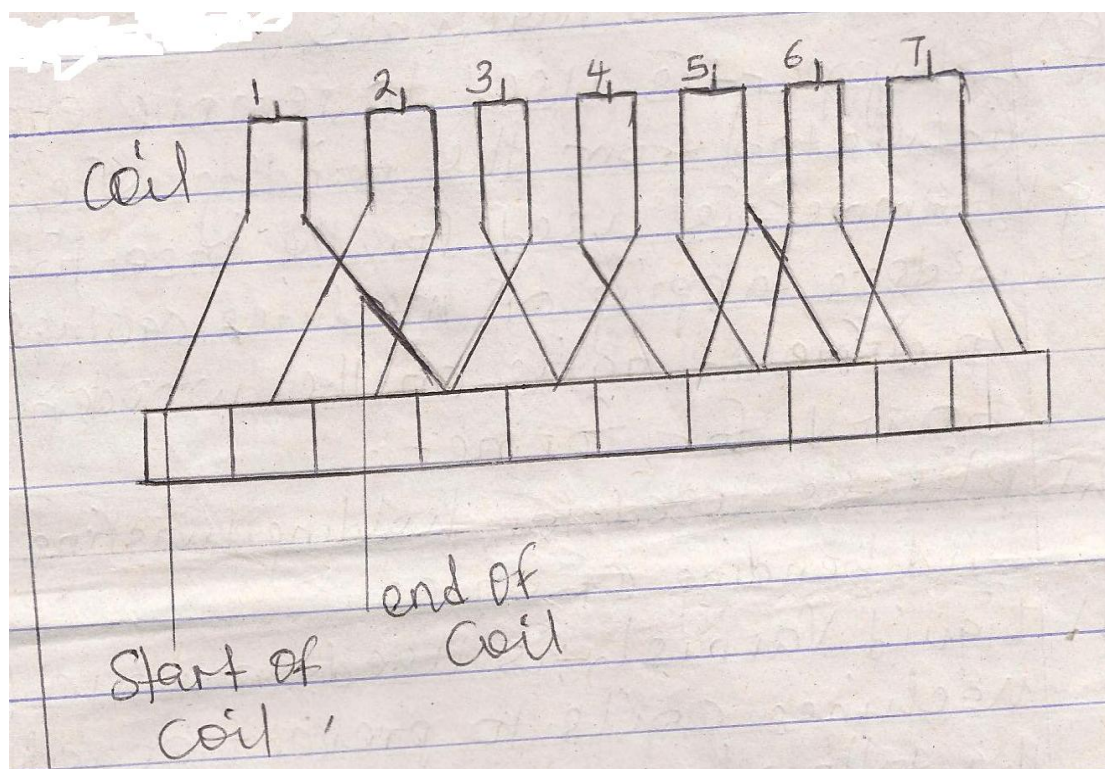 1 2 3 4 5 6 7
coil
end of
coil
Start of
coil